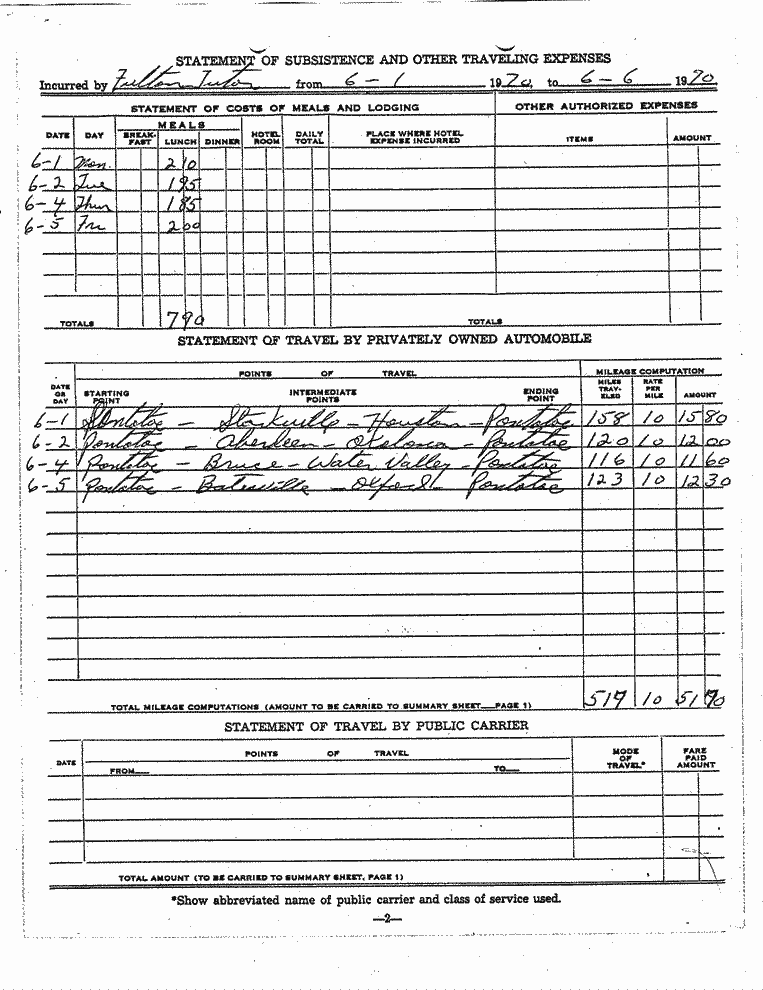 STATEMENT OF SUBSISTENCE AND OTHER TRAVELING EXPENSES
Incurred by Fulton Tutor from 6-1 1970, to 6-6 1970
STATEMENT OF COSTS OF MEALS AND LODGING OTHER AUTHORIZED EXPENSES
DATE DAY MEALS BREAK-FAST LUNCH DINNER HOTEL ROOM DAILY TOTAL PLACE WHERE HOTEL EXPENSE INCURRED ITEMS AMOUNT
6-1 Mon. 2 10
6-2 Tue 1 95
6-4 Thur 1 85
6-5 Fri 2 00
TOTALS 7 90 TOTALS
STATEMENT OF TRAVEL BY PRIVATELY OWNED AUTOMOBILE
DATE OR DAY POINTS OF TRAVEL MILEAGE COMPUTATION
STARTING POINT INTERMEDIATE POINTS ENDING POINT MILES TRAV-ELED RATE PER MILE AMOUNT
6-1 Pontotoc - Starkville - Houston - Pontotoc 158 10 15 80
6-2 Pontotoc - Aberdeen - Okolona - Pontotoc 120 10 12 00
6-4 Pontotoc - Bruce - Water Valley - Pontotoc 116 10 11 60
6-5 Pontotoc - Batesville - Oxford - Pontotoc 123 10 12 30
TOTAL MILEAGE COMPUTATIONS (AMOUNT TO BE CARRIED TO SUMMARY SHEET—PAGE 1) 517 10 51 70
STATEMENT OF TRAVEL BY PUBLIC CARRIER
DATE POINTS OF TRAVEL MODE OF TRAVEL* FARE PAID AMOUNT
FROM— TO—
TOTAL AMOUNT (TO BE CARRIED TO SUMMARY SHEET, PAGE 1)
*Show abbreviated name of public carrier and class of service used.
—2—